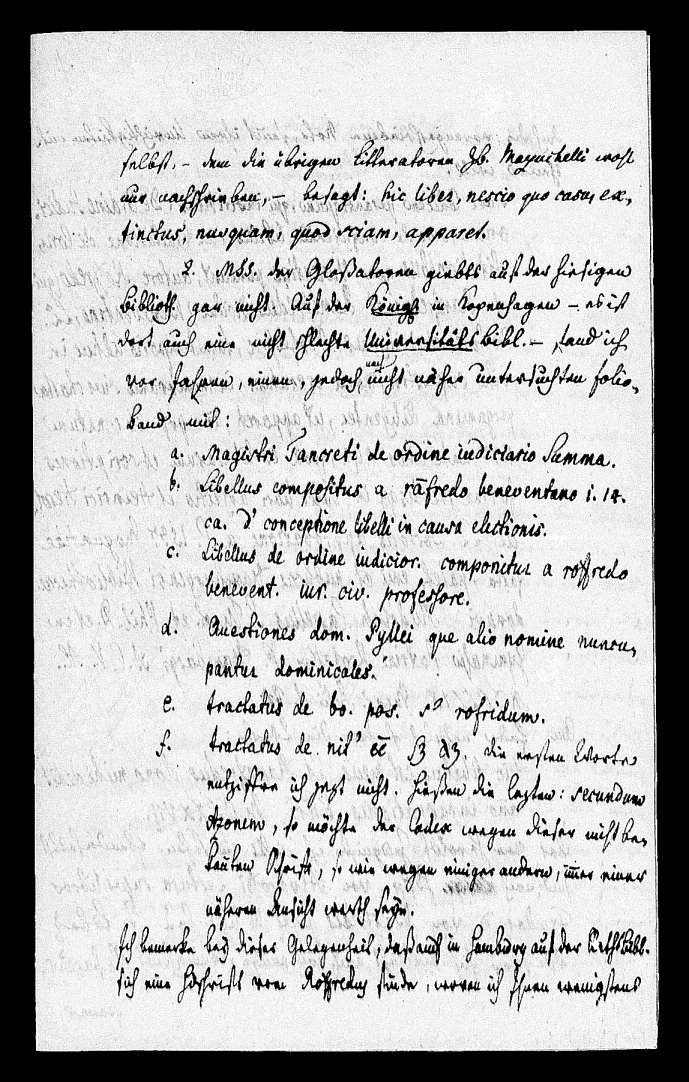 selbst, – dem die übrigen Litteratoren Zb. Mazuchelli wohl
nur nachschrieben, – besagt: hic liber, nescio quo casu, ex-
tinctus, nusquam, quod sciam, apparet.
2. Mss. der Gloßatoren giebts auf der hiesigen
Biblioth. gar nicht. Auf der Königl. in Kopenhagen – es ist
dort auch eine nicht schlechte Universitäts Bibl. – fand ich
vor Jahren, einen, jedoch noch nicht näher untersuchten folio-
Band mit:
a. Magistri Tancreti de ordine iudiciario Summa.
b. Libellus compositus a rāfredo beneventano i. 14.
ca. d' conceptione libelli in causa electionis.
c. Libellus de ordine iudicior. componitur a roffredo
benevent. iur. civ. professore.
d. Quaestiones dom. Pyllei que alio nomine nuncu-
pantur dominicales.
e. tractatus de bo. pos. s' rofridum.
f. tractatus de. die ersten Worte
entziffre ich jezt nicht. Hießen die lezten: secundum
Azonem, so möchte der Codex wegen dieser nicht be-
kannten Schrift, so wie wegen einiger andern, immer einer
näheren Ansicht werth seyn.
Ich bemerke bey dieser Gelegenheit, daß auch in Hamburg auf der Raths Bibl.
sich eine Hdschrift vom Roffredus finde, wovon ich Ihnen wenigstens